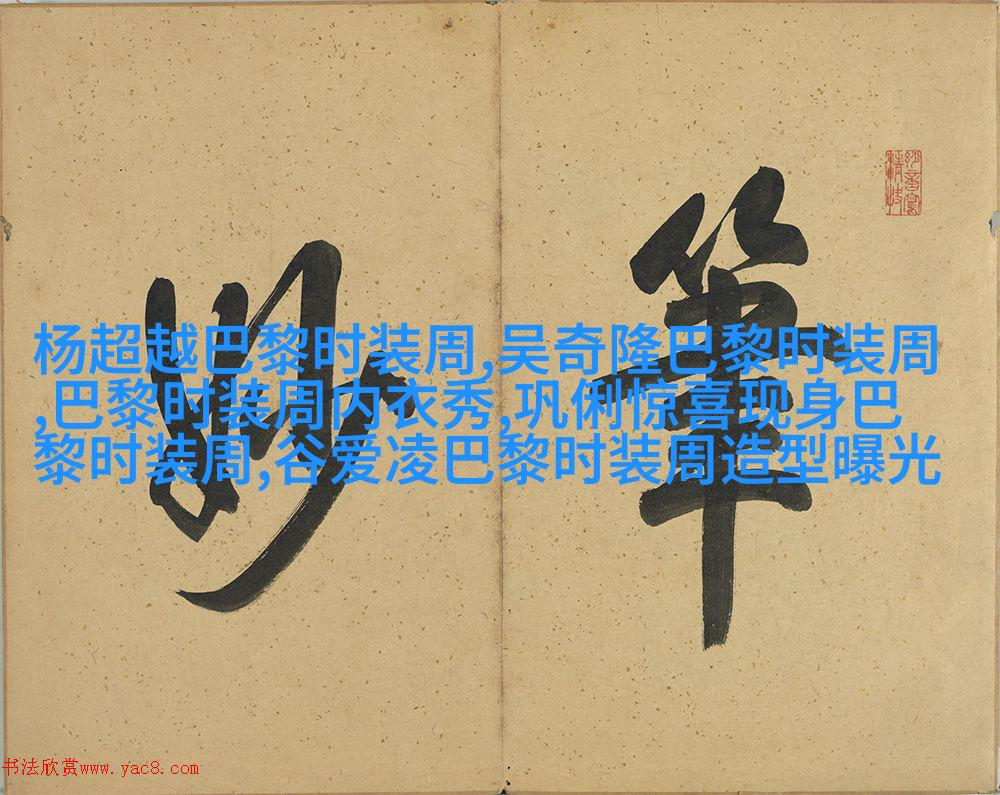 筆
妙
杨超越巴黎时装周,吴奇隆巴黎时装周
,巴黎时装周内衣秀,巩俐惊喜现身巴
黎时装周,谷爱凌巴黎时装周造型曝光
书法欣赏www.yac8.com